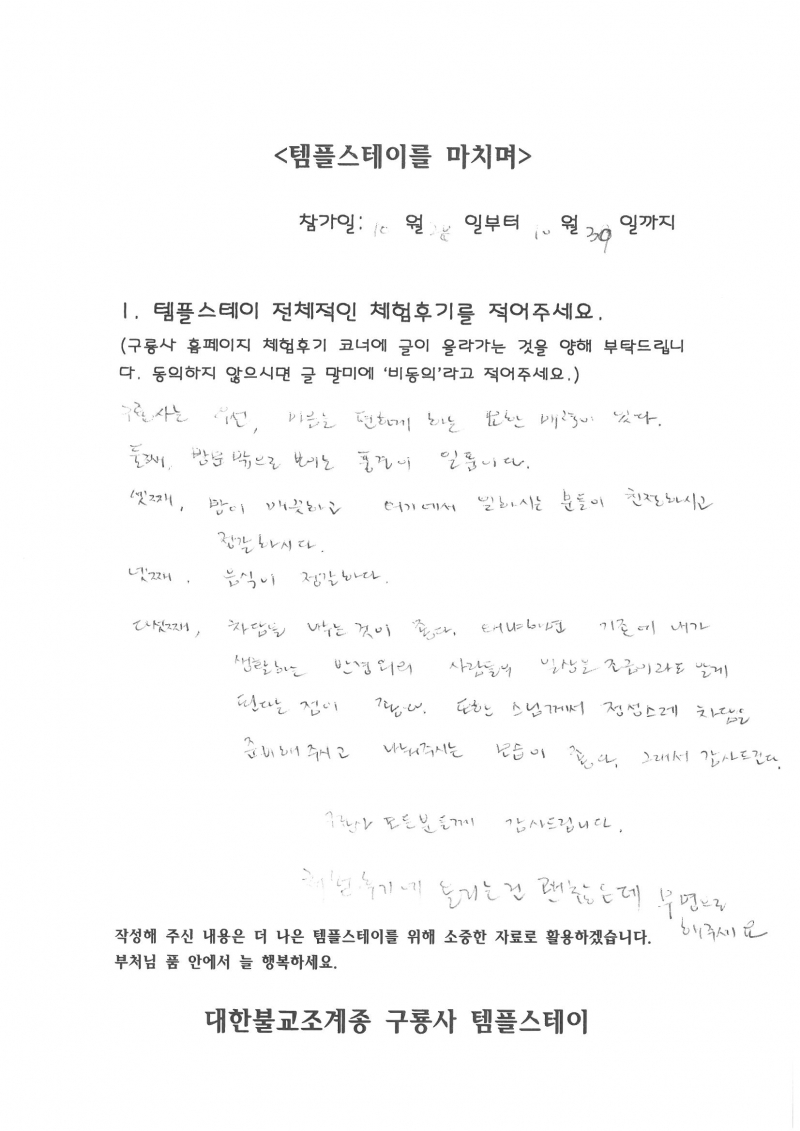 <템플스테이를 마치며>
참가일: 10 월 28 일부터 10 월 30 일까지
1. 템플스테이 전체적인 체험후기를 적어주세요.
(구룡사 홈페이지 체험후기 코너에 글이 올라가는 것을 양해 부탁드립니
다. 동의하지 않으시면 글 말미에 '비동의'라고 적어주세요.)
구룡사는 우선, 마음을 편하게 하는 묘한 매력이 있다.
둘째, 방문 밖으로 보이는 풍경이 일품이다.
셋째, 방이 깨끗하고 여기에서 일하시는 분들이 친절하시고
정갈하시다.
넷째. 음식이 정갈하다.
다섯째, 차담을 나누는 것이 좋다. 왜냐하면 기존에 내가
생활하는 반경외의 사람들의 일상을 조금이라도 알게
된다는 점이 좋다. 또한 스님께서 정성스레 차담을
준비해 주시고 나눠주시는 모습이 좋다. 그래서 감사드린다.
구룡사 모든분들께 감사드립니다.
체험후기에 올리는건 괜찮은데 무명으로
해주세요
작성해 주신 내용은 더 나은 템플스테이를 위해 소중한 자료로 활용하겠습니다.
부처님 품 안에서 늘 행복하세요.
대한불교조계종 구룡사 템플스테이